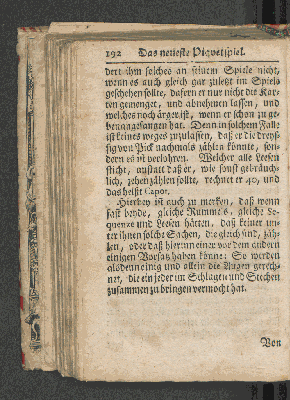 192 Das neueste Piquetspiel.
dert ihm solches an seinem Spiele nicht,
wenn es auch gleich gar zuletzt im Spiele
geschehen sollte, dafern er nur nicht die Kar-
ten gemenget, und abnehmen lassen, und
welches noch ärger ist, wenn er schon zu ge-
ben angefangen hat. Denn in solchem Falle
ist keines weges zuzulassen, daß er die dreys-
sig von Pick nachmals zählen könnte, son-
dern es ist verlohren. Welcher alle Lesen
sticht, anstatt daß er, wie sonst gebräuch-
lich, zehen zählen sollte, rechnet er 40, und
das heißt Capot.
Hierbey ist auch zu merken, daß wenn
fast beyde, gleiche Rummels, gleiche Se-
quenze und Lesen hätten, daß keiner un-
ter ihnen solche Sachen, die gleich sind, zäh-
len, oder daß hierinn einer vor dem andern
einigen Vorsatz haben könne: So werden
alsdenn einig und allein die Augen gerech-
net, die ein jeder im Schlagen und Stechen
zusammen zu bringen vermocht hat.
Von